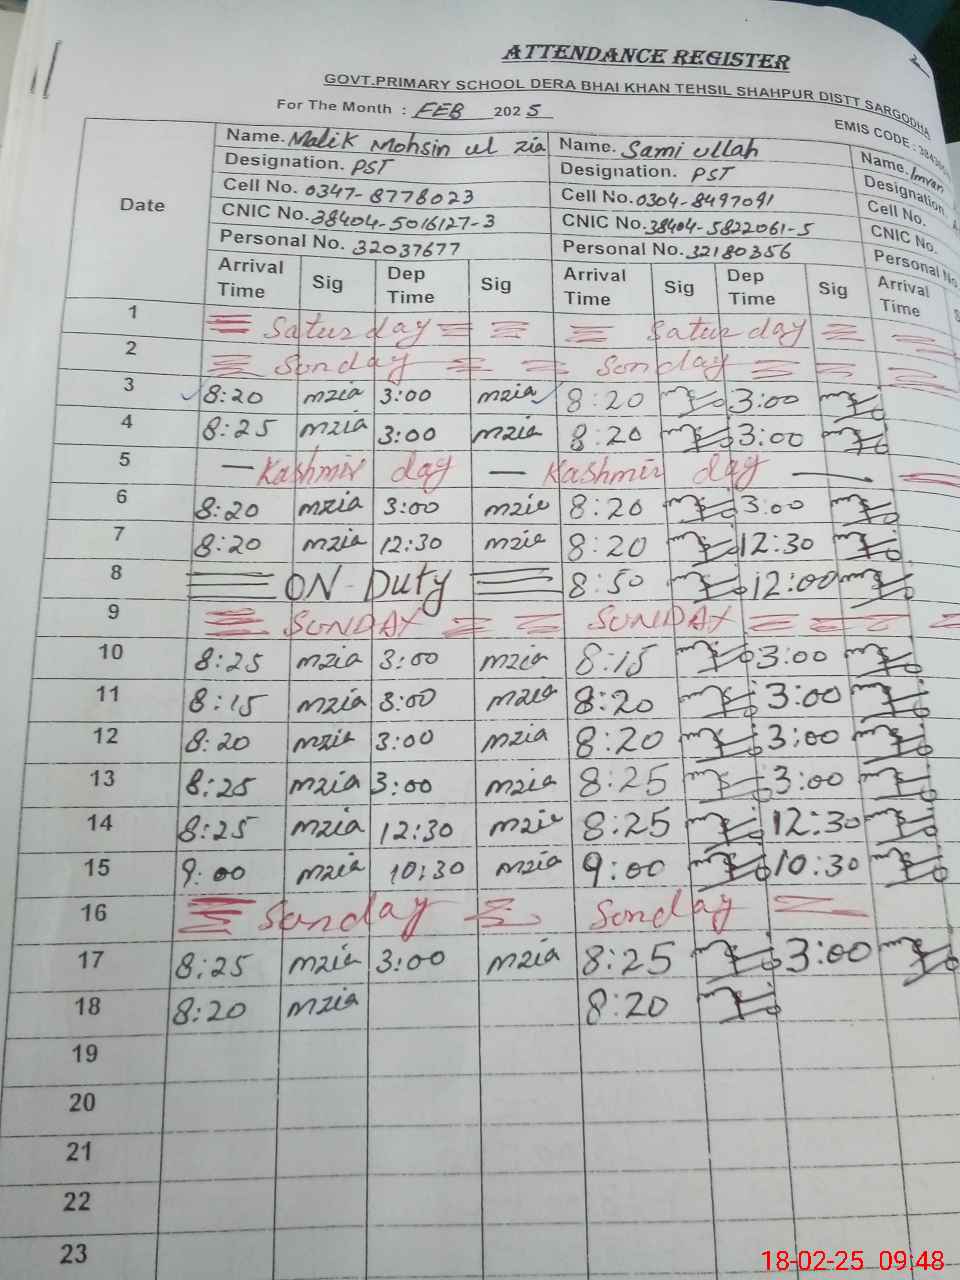 ATTENDANCE REGISTER
GOVT.PRIMARY SCHOOL DERA BHAI KHAN TEHSIL SHAHPUR DISTT SARGODHA
For The Month : FEB 2025
EMIS CODE :
Date
Name. Malik Mohsin ul zia Name. Sami ullah Name. Imran
Designation. PST Designation. PST Designation.
Cell No. 0347-8778023 Cell No. 0304-8497091 Cell No.
CNIC No. 38404-5016127-3 CNIC No. 38404-5822061-5 CNIC No.
Personal No. 32037677 Personal No. 32180356 Personal No
Arrival Time Sig Dep Time Sig Arrival Time Sig Dep Time Sig Arrival Time
1 Saturday Saturday
2 Sonday Sonday
3 8:20 mzia 3:00 mzia 8:20 3:00
4 8:25 mzia 3:00 mzia 8:20 3:00
5 — Kashmir day — Kashmir day —
6 8:20 mzia 3:00 mzia 8:20 3:00
7 8:20 mzia 12:30 mzia 8:20 12:30
8 ON-Duty 8:50 12:00
9 SUNDAY SUNDAY
10 8:25 mzia 3:00 mzia 8:15 3:00
11 8:15 mzia 3:00 mzia 8:20 3:00
12 8:20 mzia 3:00 mzia 8:20 3:00
13 8:25 mzia 3:00 mzia 8:25 3:00
14 8:25 mzia 12:30 mzia 8:25 12:30
15 9:00 mzia 10:30 mzia 9:00 10:30
16 Sonday Sonday
17 8:25 mzia 3:00 mzia 8:25 3:00
18 8:20 mzia 8:20
19
20
21
22
23
18-02-25 09:48